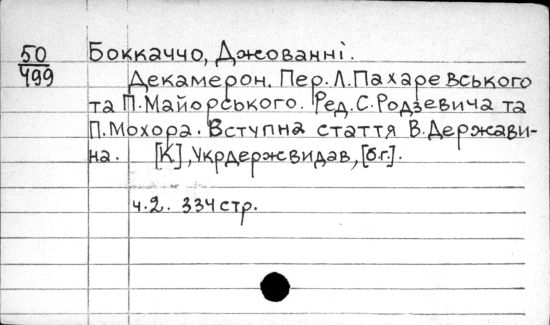 50 Боккаччо, Джованні.
499 Декамерон. Пер. Л. Пахаревського
та П. Майорського. Ред. С. Родзевича та
П. Мохора. Вступна стаття В. Держави-
на. [К], Укрдержвидав, [б.г.].
ч.2. 334 стр.